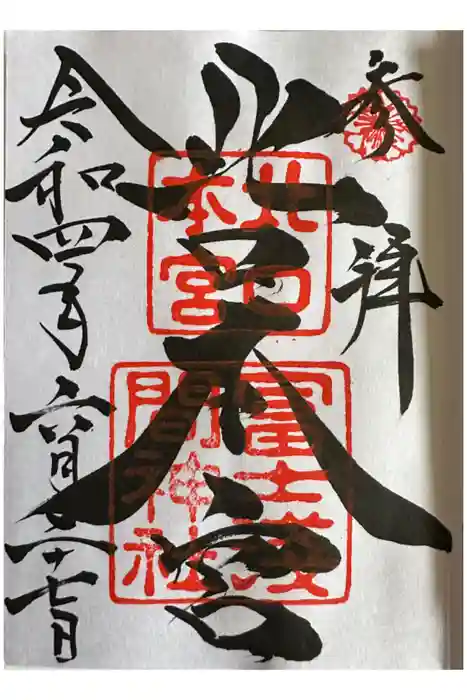 参拝
北口本宮
北口
本宮
冨士淺
間神社
令和四年六月二十七日